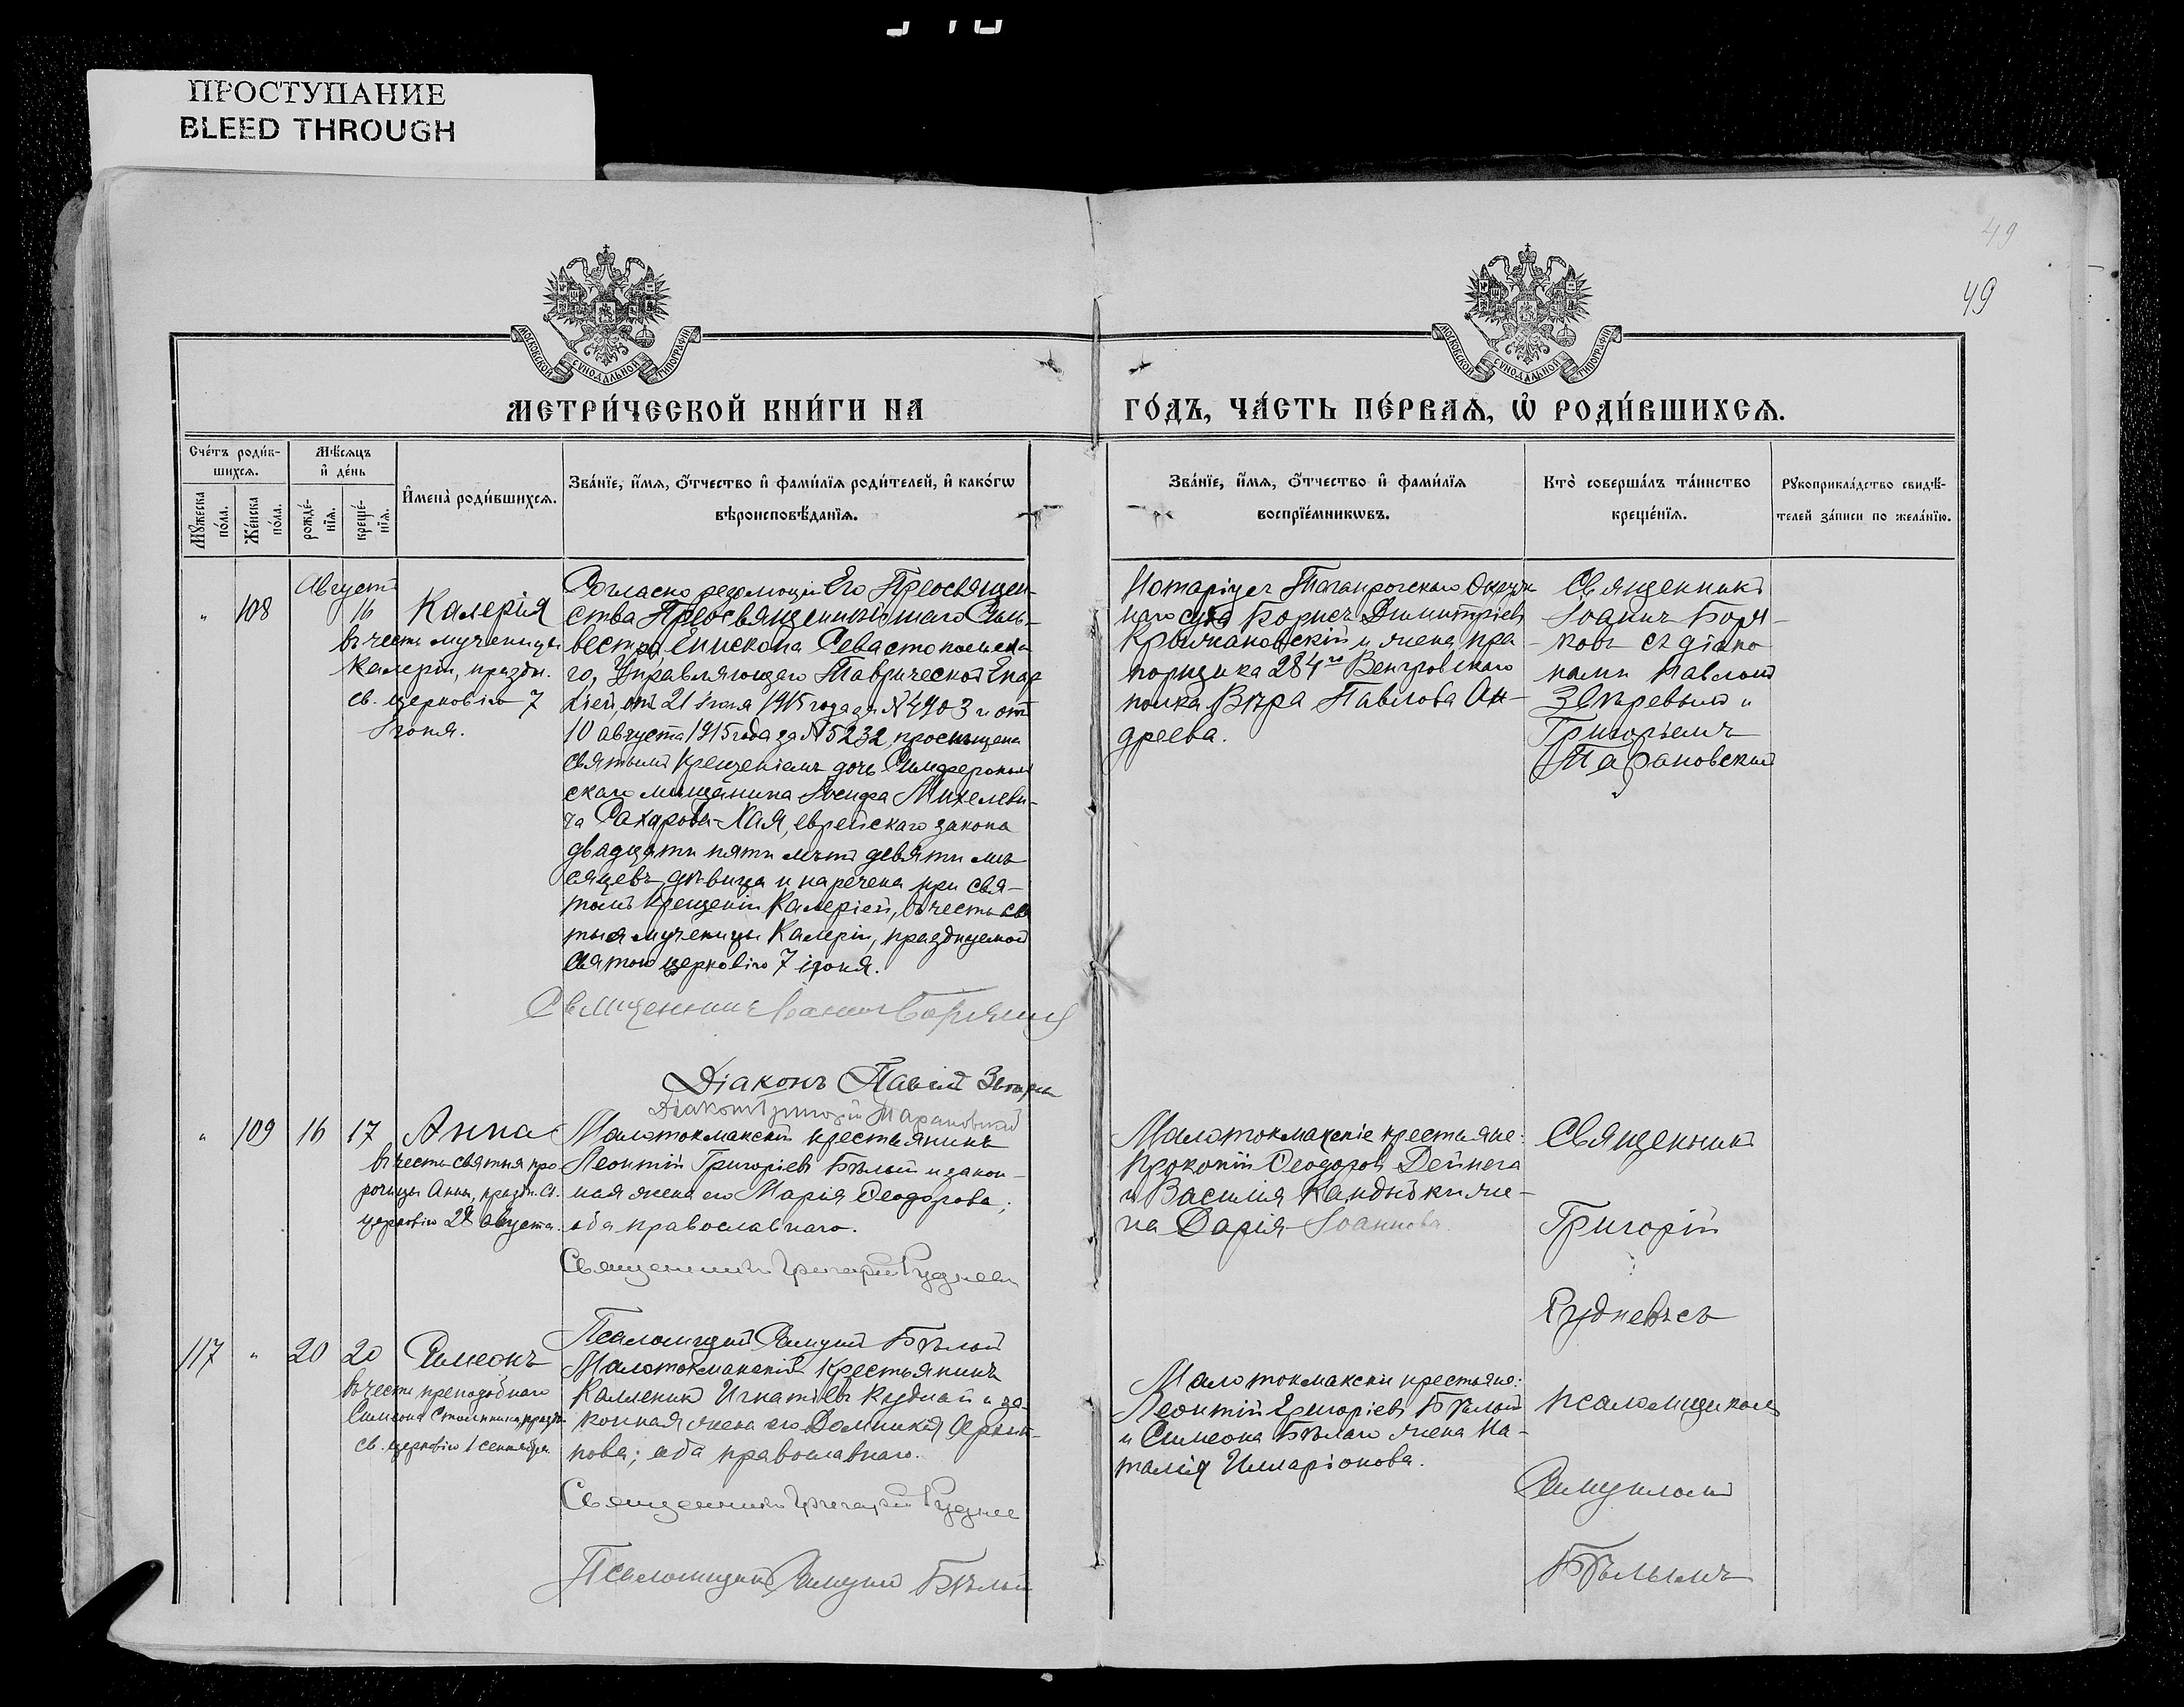 ПРОСТУПАНИЕ
BLEED THROUGH
49
49
МОСКОВСКОЙ СѴНОДАЛЬНОЙ ТИПОГРАФІИ
МОСКОВСКОЙ СѴНОДАЛЬНОЙ ТИПОГРАФІИ
МЕТРИ́ЧЕСКОЙ КНИ́ГИ НА
ГО́ДЪ, ЧА́СТЬ ПЕ́РВАѦ, Ѡ҆ РОДИ́ВШИХСѦ.
Сче́тъ роди́в-
шихсѧ.
Мꙋ́жеска
по́ла.
Же́нска
по́ла.
Мѣ́сѧцъ
и҆ де́нь
рожде́-
нїѧ.
креще́-
нїѧ.
И҆мена̀ роди́вшихсѧ.
Зва́нїе, и҆́мѧ, ѻ҆́тчество и҆ фами́лїѧ роди́телей, и҆ како́гѡ
вѣроисповѣ́данїѧ.
Зва́нїе, и҆́мѧ, ѻ҆́тчество и҆ фами́лїѧ
воспрїе́мникѡвъ.
Кто̀ соверша́лъ та́инство
креще́нїѧ.
Рꙋкоприкла́дство свидѣ́-
телей за́писи по жела́нїю.
Августъ
" 108 16 Калерія
въ честь мученицы
Калеріи, праздн.
св. церковію 7
Іюня.
Согласно резолюціи Его Преосвящен-
ства Преосвященнѣйшаго Силь-
вестра Епископа Севастопольска-
го, Управляющаго Таврической Епар
хіей, отъ 21 Іюля 1915 года за № 4903 и отъ
10 августа 1915 года за № 5232, просвѣщена
святымъ Крещеніемъ дочь Симферополь
скаго мѣщанина Іосифа Михелеви-
ча Сахарова-Хая, еврейскаго закона
двадцати пяти лѣтъ девяти мѣ
сяцевъ, дѣвица и наречена при свя-
томъ Крещеніи Калеріей, въ честь свя
тыя мученицы Калеріи, празднуемой
Святою церковію 7 іюня.
Священникъ Іоаннъ Боряковъ
Діаконъ Павелъ Звѣревъ
Діаконъ Григорій Тарановскій
Нотаріусъ Таганрогскаго Окруж
наго суда Борисъ Димитріевъ
и жена пра-
порщика 284го Венгровскаго
полка Вѣра Павлова Ан-
дреева.
Священникъ
Іоаннъ Боря-
ковъ съ діако
нами Павломъ
Звѣревымъ и
Григоріемъ
Тарановскимъ
" 109 16 17 Анна
въ честь святыя про
рочицы Анны, праздн. св.
церковію 28 августа.
Малотокмакскій крестьянинъ
Леонтій Григоріевъ Бѣлый и закон-
ная жена его Марія Ѳеодорова;
оба православнаго.
Священникъ Григорій Рудневъ
Псаломщикъ Бѣлый
Малотокмакскіе крестьяне:
Прокопій Ѳеодоровъ Дейнега
и Василія Кандыбки же-
на Дарія Іоаннова.
Священникъ
Григорій
Рудневъ съ
117 " 20 20 Симеонъ
въ честь преподобнаго
Симеона Столпника, праздн.
св. церковію 1 сентября
Малотокмакскій крестьянинъ
Каленикъ Игнатіевъ и за-
конная жена его Домникія
; оба православнаго.
Священникъ Григорій Руднев
Псаломщикъ Бѣлый
Малотокмакскіи крестьяне:
Леонтій Григоріевъ Бѣлый
и Симеона Бѣлаго жена На-
талія Иларіонова.
псаломщикомъ
Бѣлымъ